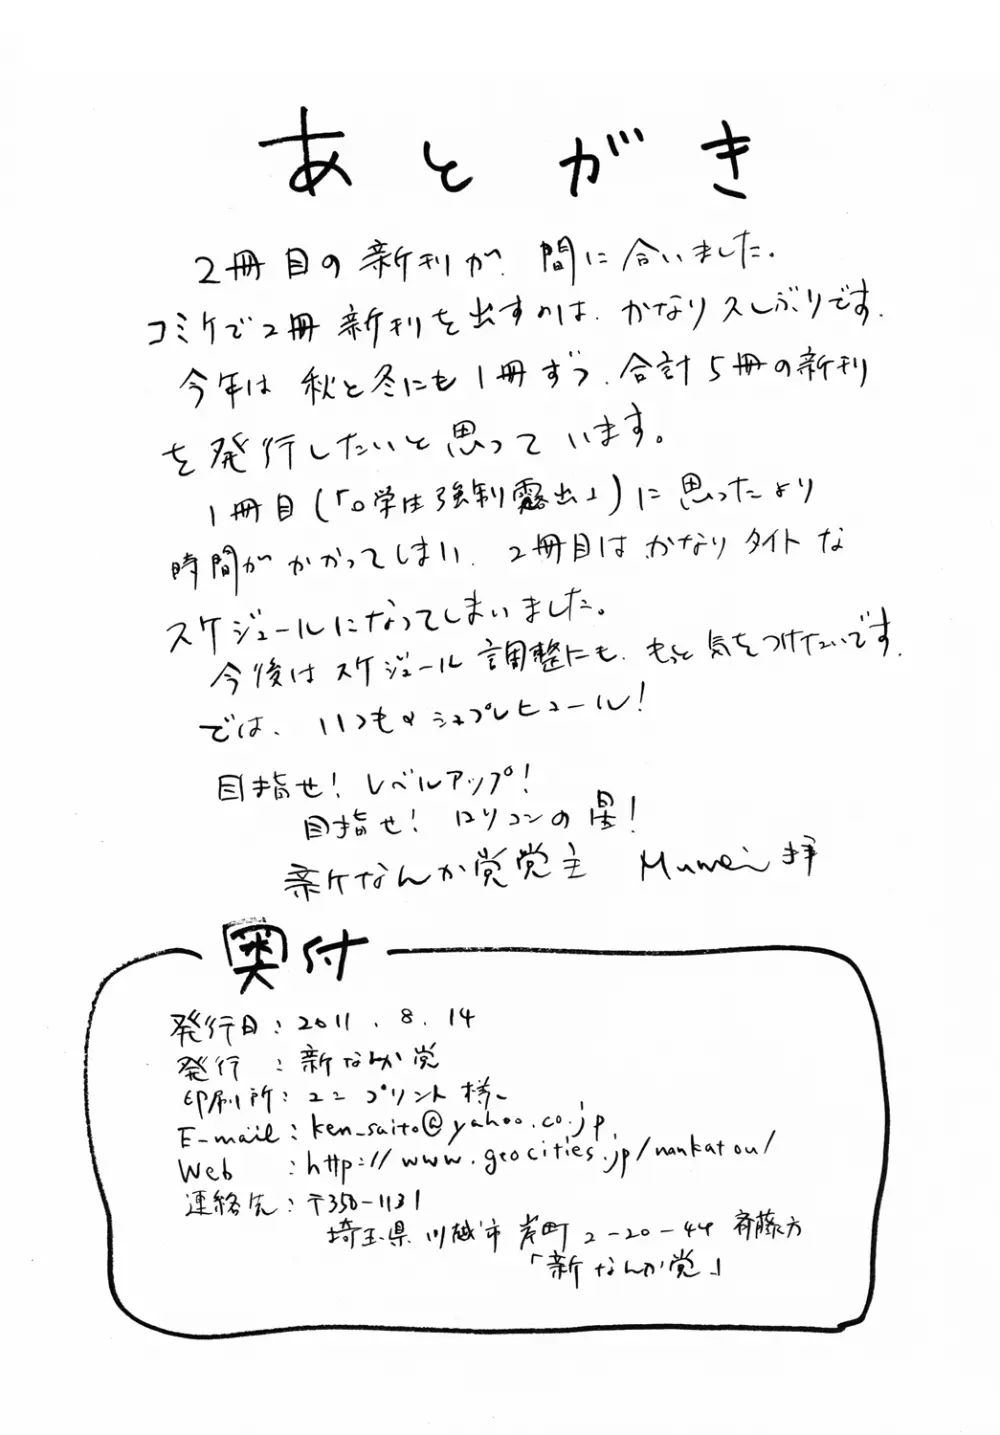 あとがき
2冊目の新刊が、間に合いました。
コミケで2冊新刊を出すのは、かなり久しぶりです。
今年は秋と冬にも1冊ずつ、合計5冊の新刊
を発行したいと思っています。
1冊目(「○学生強制露出」)に思ったより
時間がかかってしまい、2冊目はかなりタイトな
スケジュールになってしまいました。
今後はスケジュール調整にも、もっと気をつけたいです。
では、いつもの シュプレヒコール!
目指せ! レベルアップ!
目指せ! ロリコンの星!
新なんか党党主 Mumei 拝
奥付
発行日:2011.8.14
発行 :新なんか党
印刷所:コニープリント様
E-mail:ken_saito@yahoo.co.jp
Web :http://www.geocities.jp/nankatou/
連絡先:〒350-1131
埼玉県川越市岸町2-20-44 斉藤方
「新なんか党」